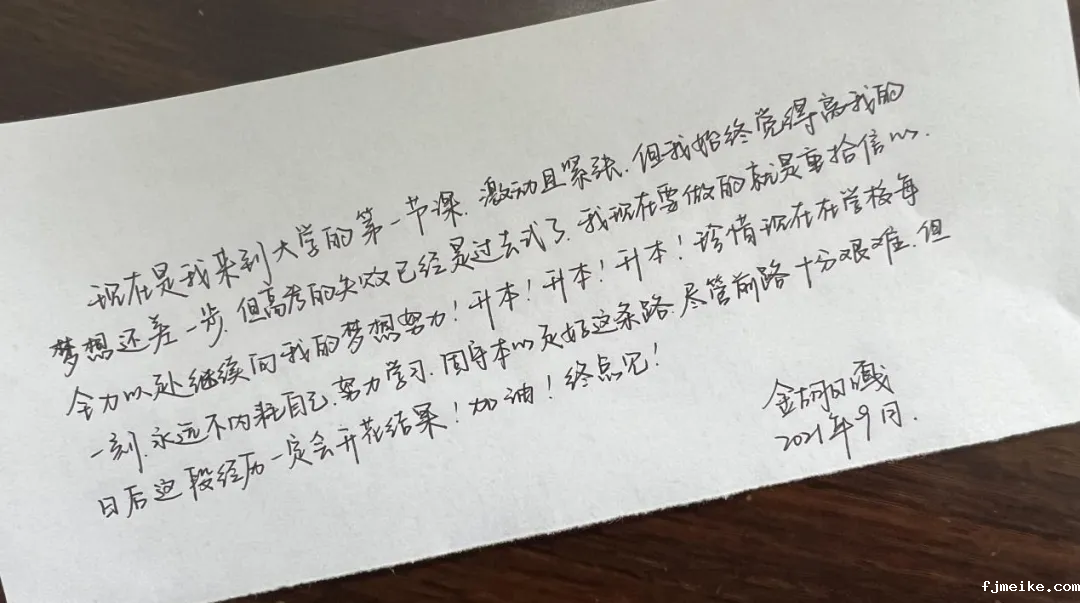 现在是我来到大学的第一节课.激动且紧张.但我始终觉得离我的
梦想还差一步.但高考的失败已经是过去式了.我现在要做的就是重拾信心.
全力以赴继续向我的梦想努力!升本!升本!升本!珍惜现在在学校每
一刻.永远不内耗自己.努力学习.固守本心走好这条路.尽管前路十分艰难.但
日后这段经历一定会开花结果!加油!终点见!
2021年9月.
fjmeike.com